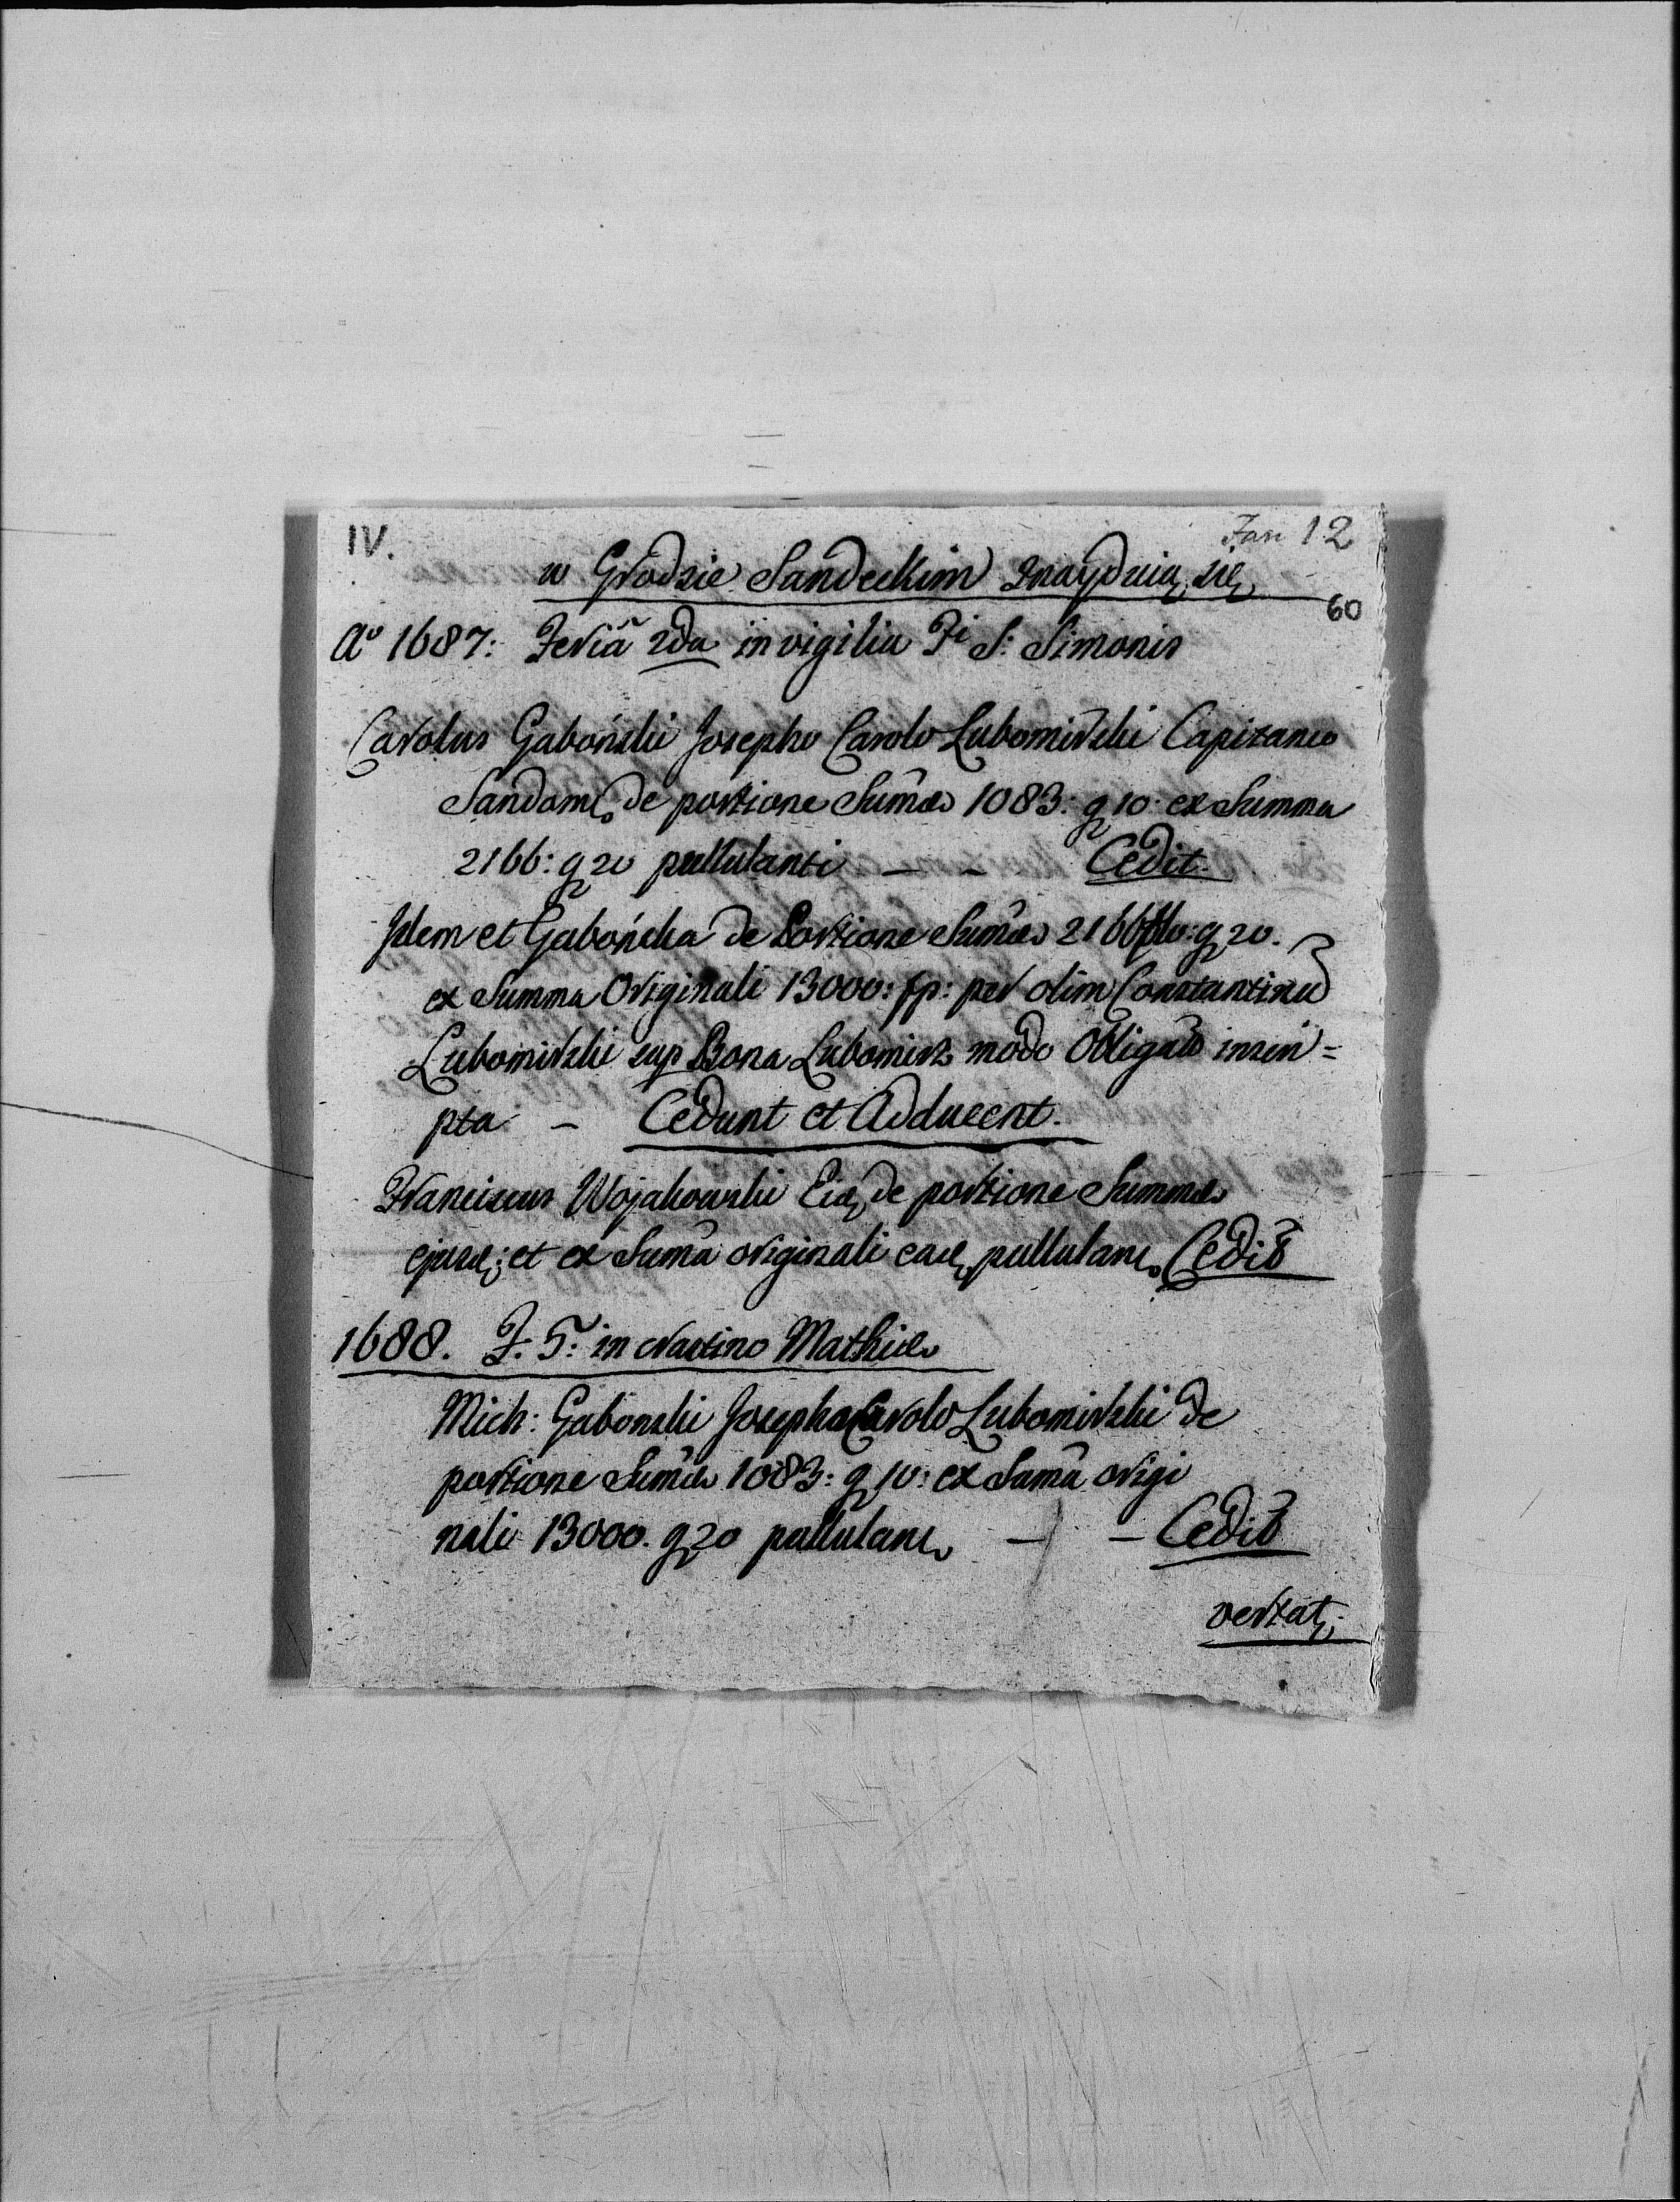 IV. Fasc 12
w Grodzie Sandeckim Znayduią się
60
Aº 1687: Feriâ 2da in vigilia Fi S: Simonis
Carolus Gaboński Josepho Carolo Lubomirski Capitaneo
Sandom de portione Sum̃æ 1083: g 10. ex Summa
2166: g 20 pullulanti — - Cedit.
Idem et Gabońska de Portione Sum̃æ 2166 g 20.
ex Summa Originali 13000: fp: per olim Constantinũ
Lubomirski sup Bona Lubomirz modo Obligato inscri=
pta - Cedunt et Adducent.
Franciscus Wojakowski Eid de portione Summæ
ejusd: et ex Sum̃a originali ead pullulan Cedit
1688. F. 5: in crastino Mathiæ
Mich: Gabonski Josepho Carolo Lubomirski de
portione Sum̃æ 1083: g 10: ex Sum̃a origi
nali 13000. g 20 pullulan — - Cedit
vertat;